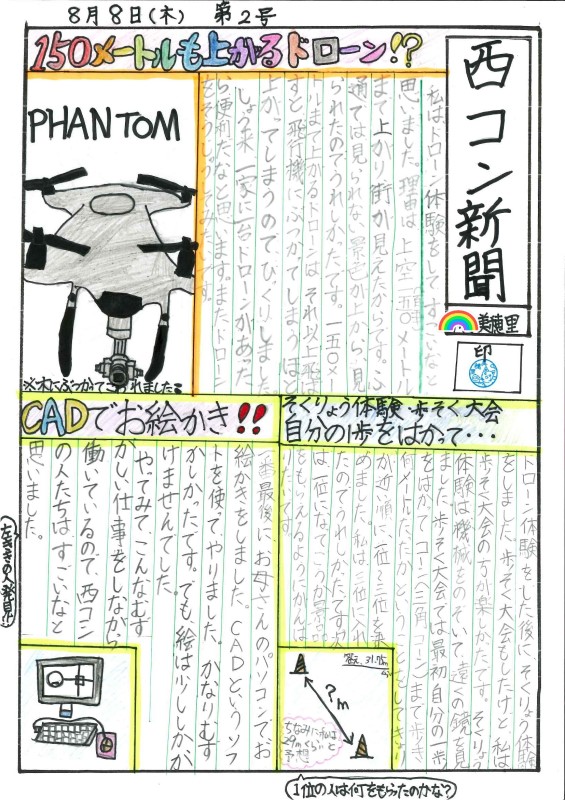 8月8日(木) 第2号
西コン新聞
美穂里
印
150メートルも上がるドローン!?
私はドローン体験をしてすごいなと
思いました。理由は、上空一五〇メートル
まで上がり街が見えたからです。ふ
通では見られない景色が上から、見
られたのでうれしかたです。一五〇メー
トルまで上がるドローンは、それ以上飛ば
すと飛行機にぶつかてしまうほど
上がってしまうのでびっくりしました。
しょう来、一家に一台ドローンがあった
ら便利だなと思います。またドローン
をそうじゅうしてみたいです。
PHANTOM
※木にぶつかってこわれました
そくりょう体験・歩そく大会
自分の1歩をはかって・・・
ドローン体験をした後に、そくりょう体験
をしました。歩そく大会もしたけど、私は
歩そく大会の方が楽しかたです。そくりょう
体験は機械をのぞいて、遠くの鏡を見
ました。歩そく大会では最初自分の一歩
をはかって、コーン(三角コーン)まで歩き
何メートルだたかということをしてきょり
が近い順に一位〜三位を決
めました。私は三位に入れ
たのでうれしかたです。次
は一位になてごうか景品
をもらえるようにがんば
りたいです。
?m
答え、31.75m
ちなみに私は
29mぐらいと
予想
1位の人は何をもらったのかな?
CADでお絵かき!!
一番最後に、お母さんのパソコンでお
絵かきをしました。CADというソフ
トを使ってやりました。かなりむず
かしかったです。でも絵は少ししかか
けませんでした。
やってみて、こんなむず
かしい仕事をしながら
働いているので、西コン
の人たちはすごいなと
思いました。
左ききの人発見!!